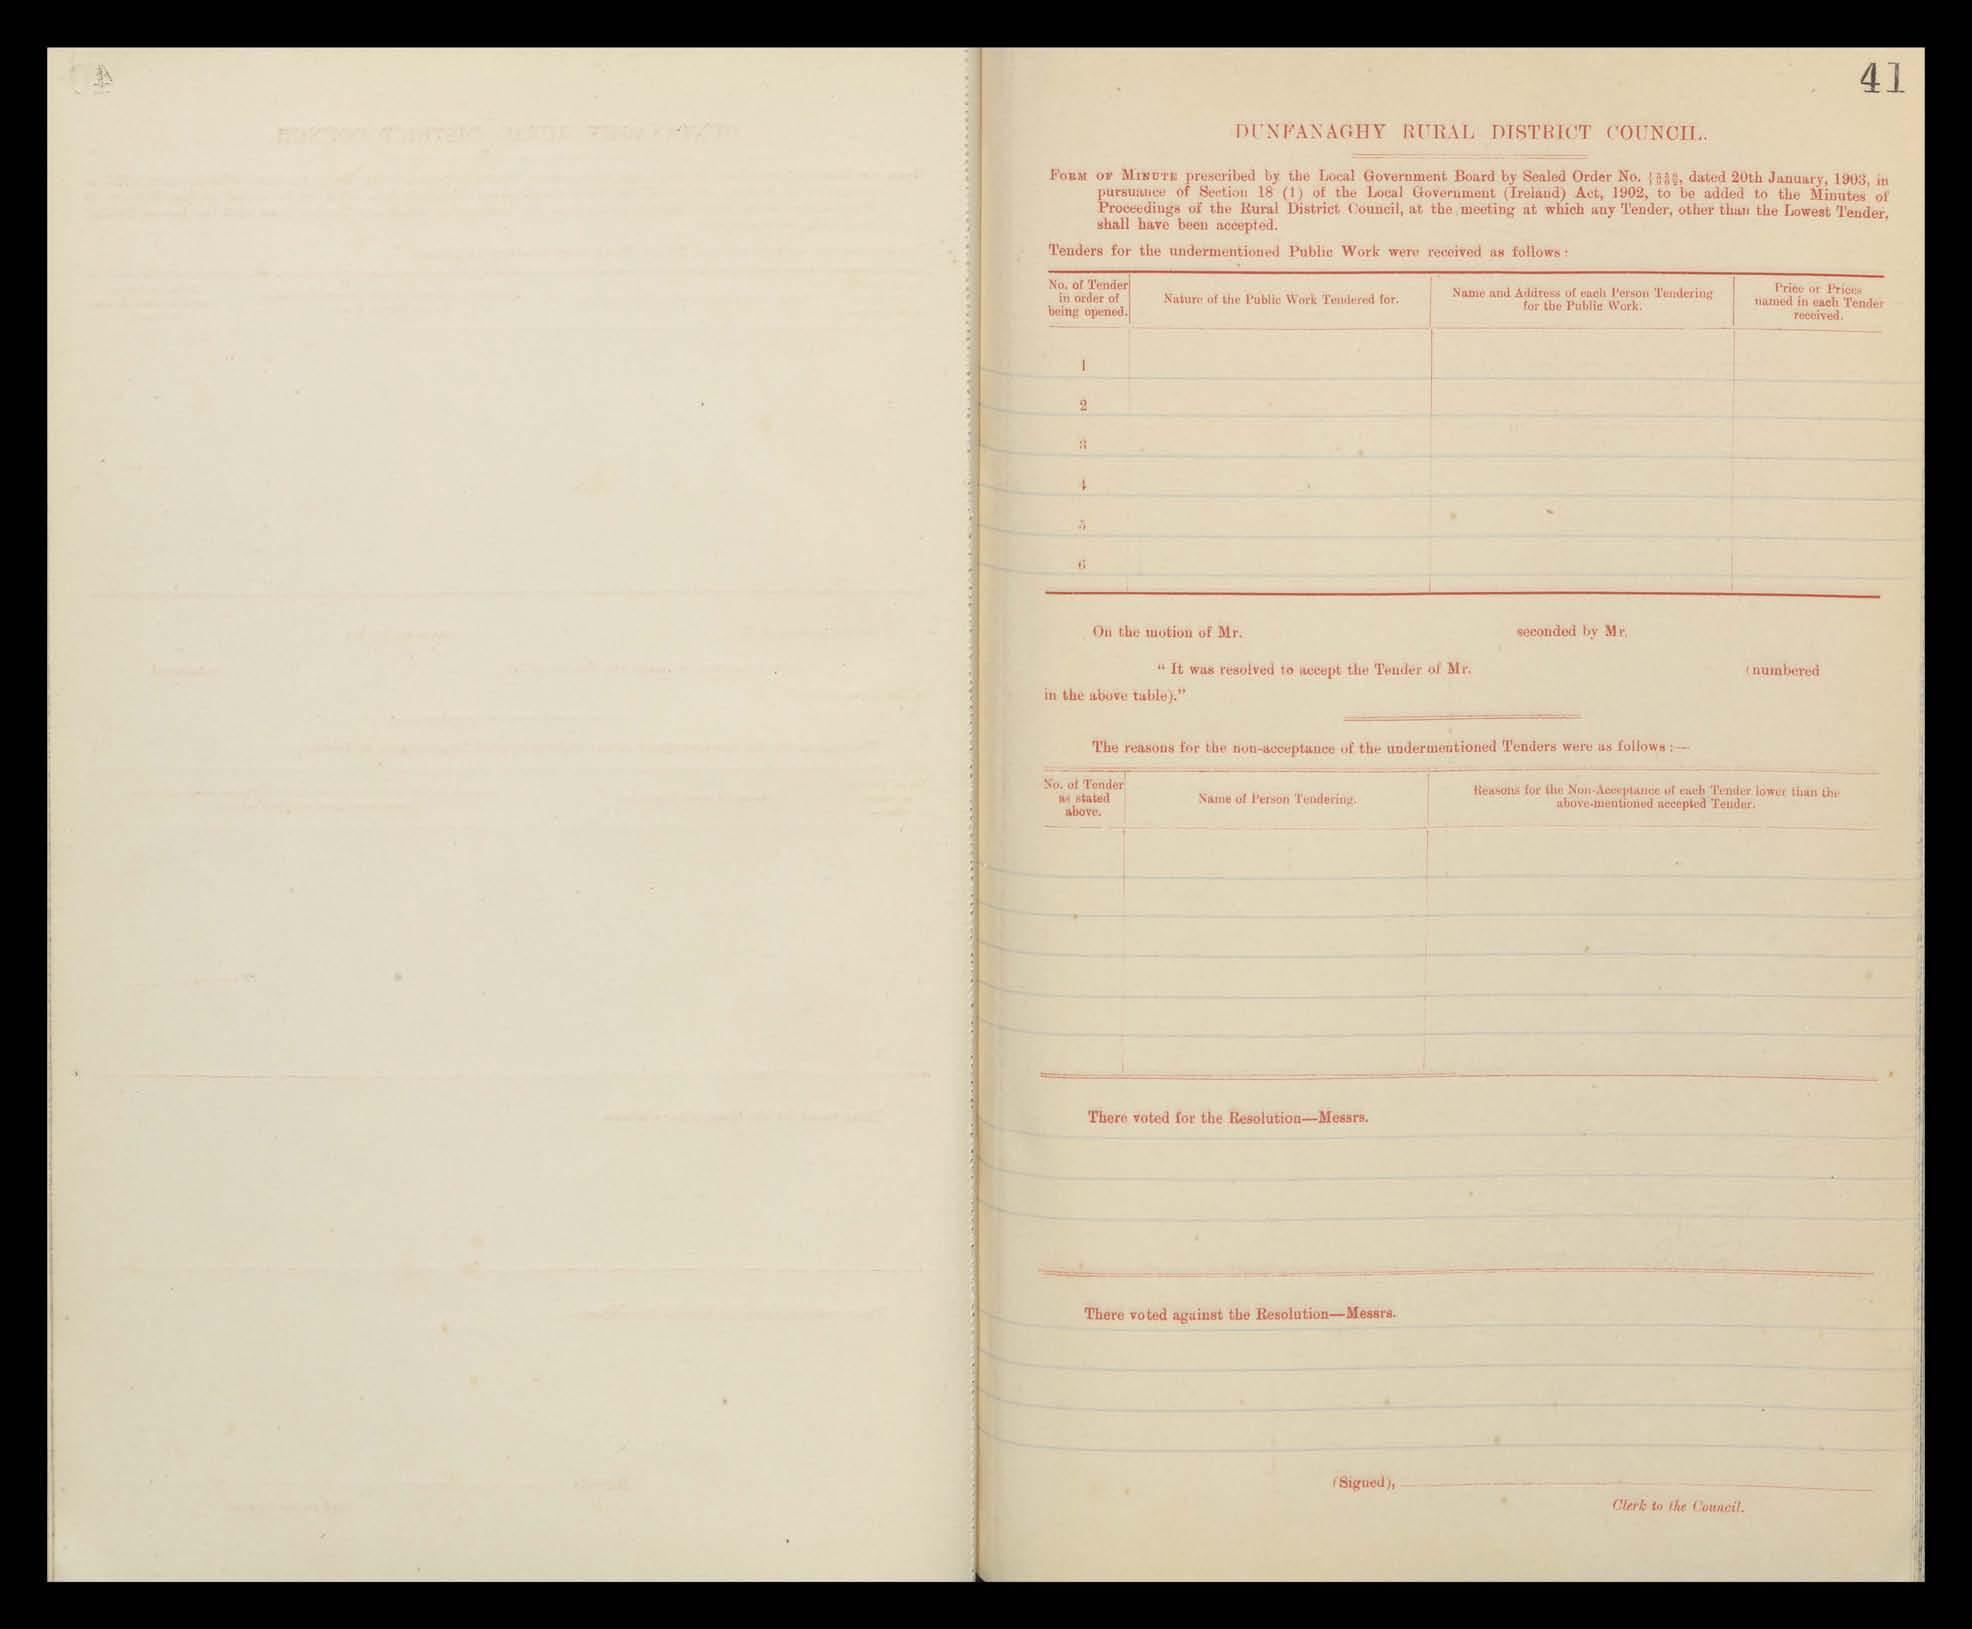 41
DUNFANAGHY RURAL DISTRICT COUNCIL.
FORM OF MINUTE prescribed by the Local Government Board by Sealed Order No. dated 20th January, 1903, in
pursuance of Section 18 (1) of the Local Government (Ireland) Act, 1902, to be added to the Minutes of
Proceedings of the Rural District Council, at the meeting at which any Tender, other than the Lowest Tender,
shall have been accepted.
Tenders for the undermentioned Public Work were received as follows:
No. of Tender
in order of
being opened.
Nature of the Public Work Tendered for.
Name and Address of each Person Tendering
for the Public Work.
Price or Prices
named in each Tender
received.
1
2
3
4
5
6
On the motion of Mr. seconded by Mr.
“ It was resolved to accept the Tender of Mr. (numbered
in the above table).”
The reasons for the non-acceptance of the undermentioned Tenders were as follows:—
No. of Tender
as stated
above.
Name of Person Tendering.
Reasons for the Non-Acceptance of each Tender lower than the
above-mentioned accepted Tender.
There voted for the Resolution—Messrs.
There voted against the Resolution—Messrs.
(Signed),
Clerk to the Council.